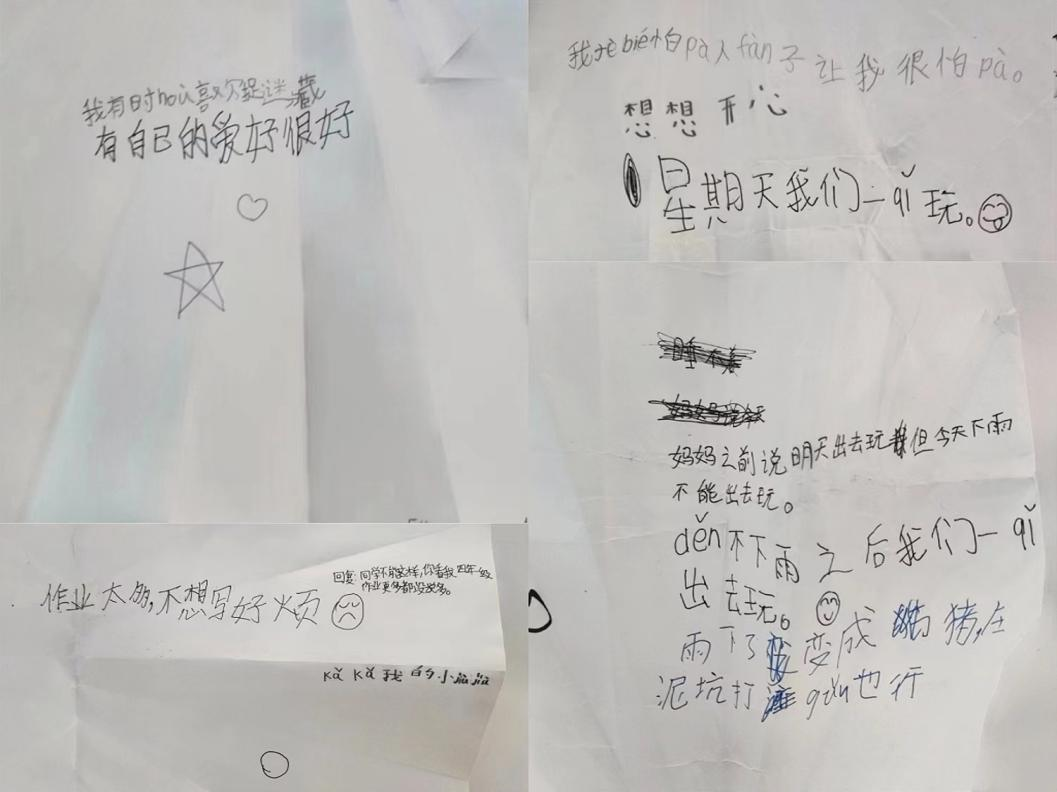 我有时hou喜欢捉迷藏
有自己的爱好很好
我tè bié怕pà人fàn子让我很怕pà。
想想开心
星期天我们一qǐ玩。
妈妈之前说明天出去玩但今天下雨
不能出去玩。
děn不下雨之后我们一qǐ
出去玩。
雨下了变成猪,在
泥坑打gǔn也行
作业太多,不想写好烦
回复:同学不能这样,你看我四年级
作业更多都没说多。
kǎ kǎ 我的小